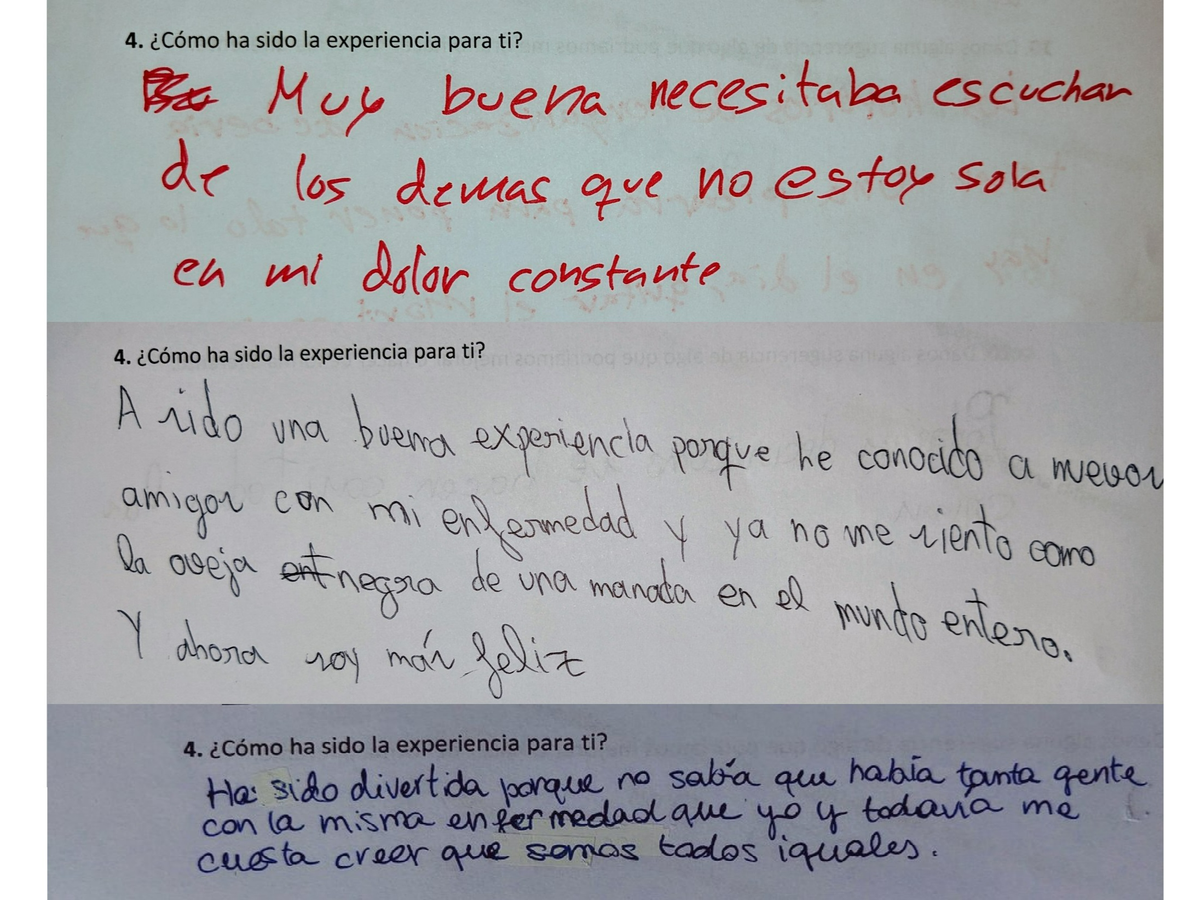 4. ¿Cómo ha sido la experiencia para ti?
Muy buena necesitaba escuchar
de los demas que no estoy sola
en mi dolor constante
4. ¿Cómo ha sido la experiencia para ti?
A sido una buena experiencia porque he conocido a nuevos
amigos con mi enfermedad y ya no me siento como
la oveja negra de una manada en el mundo entero.
Y ahora soy más feliz
4. ¿Cómo ha sido la experiencia para ti?
Ha sido divertida porque no sabía que había tanta gente
con la misma enfermedad que yo y todavía me
cuesta creer que somos todos iguales.